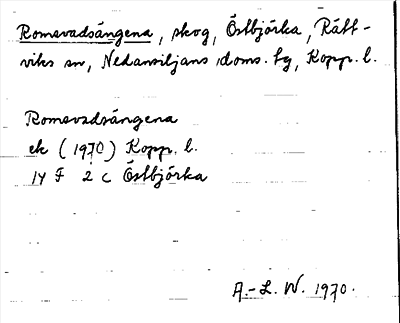 Romsvadsängena, skog, Östbjörka, Rätt-
viks sn, Nedansiljans doms. tg, Kopp. l.
Romsvadsängena
ek (1970) Kopp. l.
14 F 2 c Östbjörka
A.-L. W. 1970.